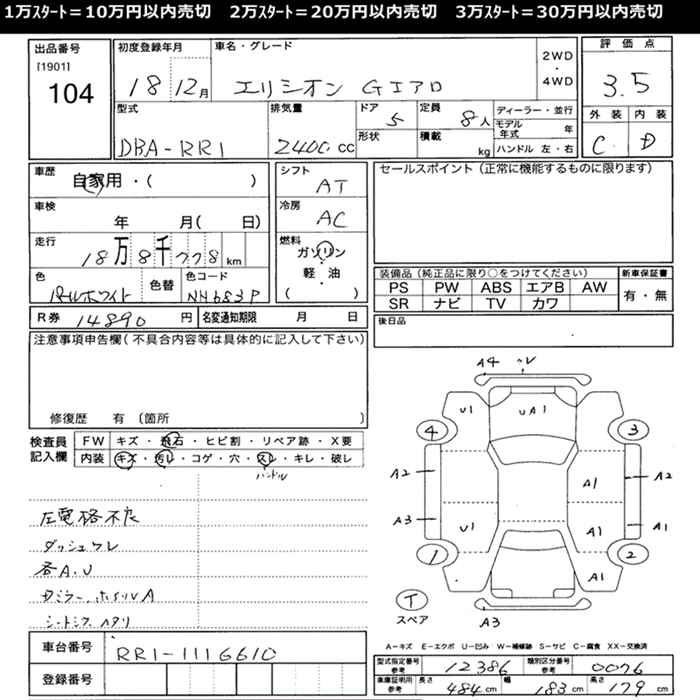 1万スタート=10万円以内売切 2万スタート=20万円以内売切 3万スタート=30万円以内売切
出品番号
[1901]
104
初度登録年月
18 12月
車名・グレード
エリシオン Gエアロ
2WD
・
4WD
評価点
3.5
外装 内装
C D
型式
DBA-RR1
排気量
2400 cc
ドア
5
形状
定員
8人
積載
kg
ディーラー・並行
モデル年式 年
ハンドル 左・右
車歴
自家用・( )
車検
年 月( 日)
走行
18万8千778km
色
パールホワイト
色替
色コード
NH683P
シフト
AT
冷房
AC
燃料
ガソリン
・
軽・油
( )
セールスポイント(正常に機能するものに限ります)
装備品(純正品に限り○をつけてください)
PS PW ABS エアB AW
SR ナビ TV カワ
新車保証書
有・無
後日品
R券 14890 円
名変通知期限 月 日
注意事項申告欄(不具合内容等は具体的に記入して下さい)
修復歴 有 (箇所 )
検査員
記入欄
FW キズ・飛石・ヒビ割・リペア跡・X要
内装 キズ・汚レ・コゲ・穴・スレ・キレ・破レ
ハンドル
左電格不良
ダッシュワレ
各A.U
ホイルA
シート
A4
U1 UA1 U1
4 3
A2 A1 A2
A3 U1 A1 A1
1 2
A1
T
スペア
A3
A-キズ E-エクボ U-凹み W-補修跡 S-サビ C-腐食 XX-交換済
車台番号
RR1-1116610
登録番号
型式指定番号
参考
12386
類別区分番号
参考
0076
車庫証明用
参考
長さ 484cm 幅 183cm 高さ 179cm